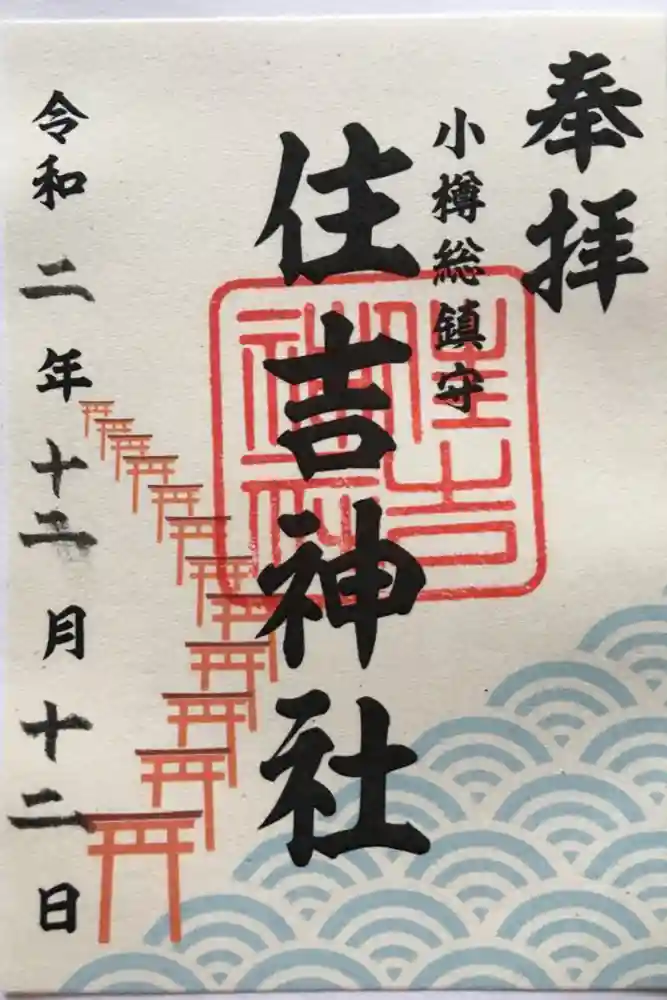 奉拝
小樽総鎮守
住吉神社
住吉
神社
令和二年十二月十二日